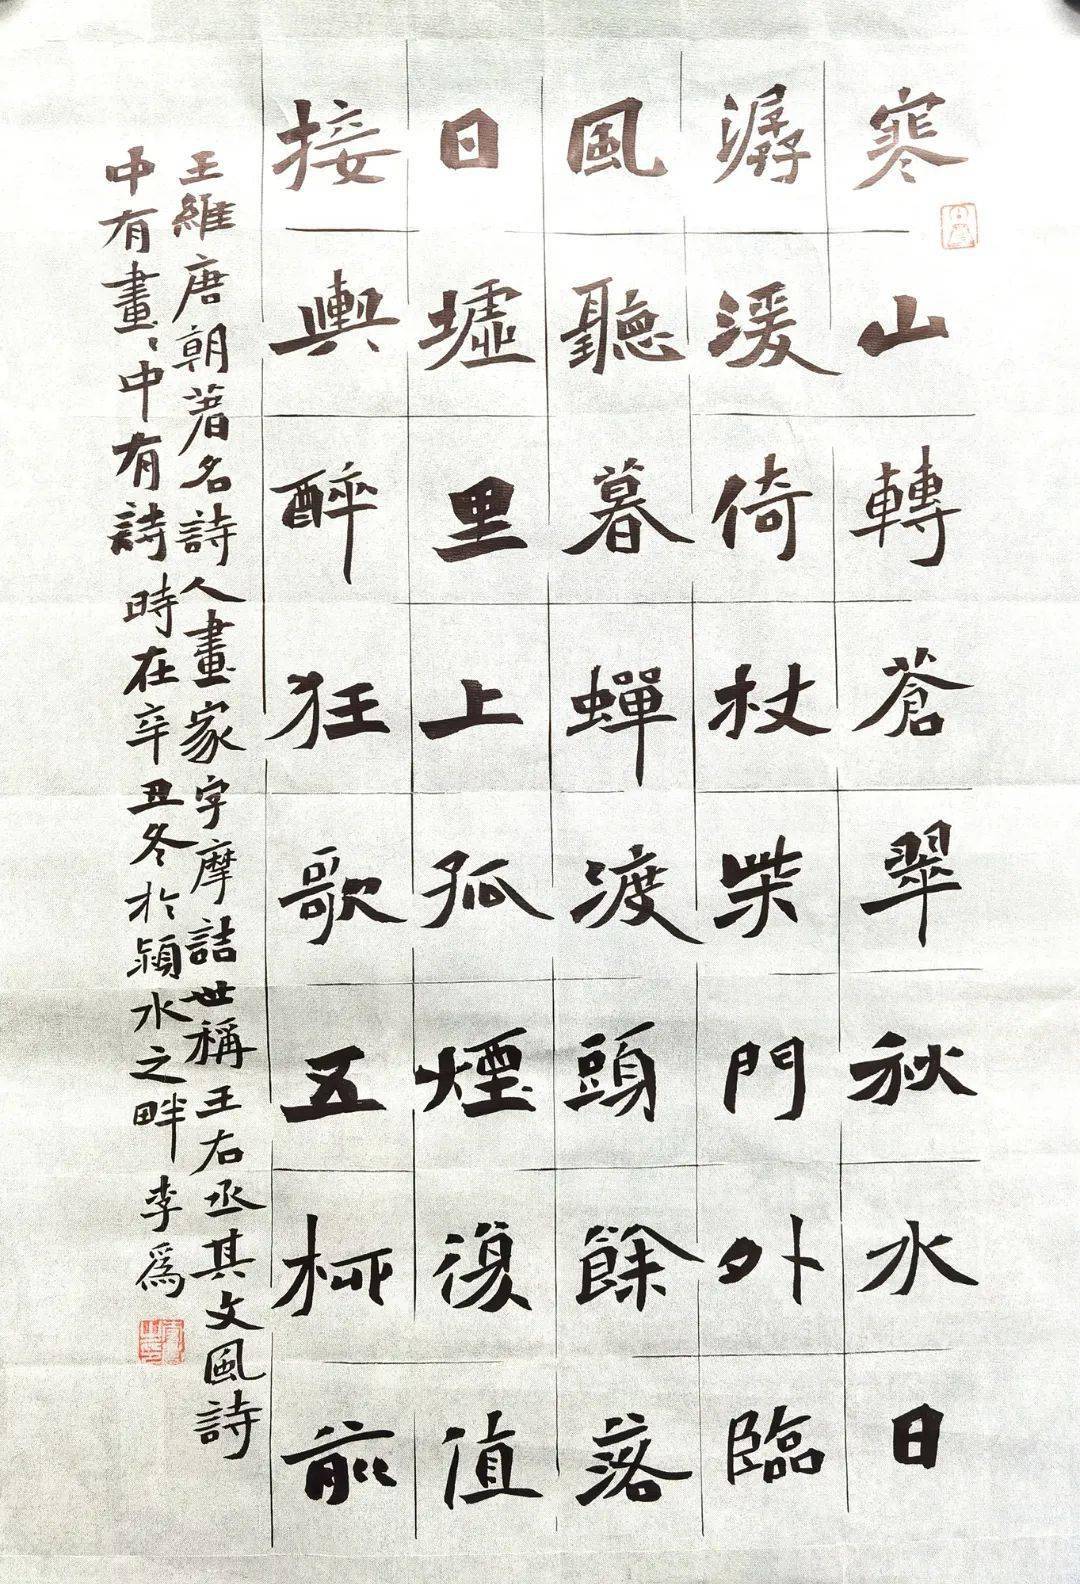 寒山轉蒼翠秋水日
潺湲倚杖柴門外臨
風聽暮蟬渡頭餘落
日墟里上孤煙復值
接輿醉狂歌五柳前
王維唐朝著名詩人畫家字摩詰世稱王右丞其文風詩
中有畫〻中有詩時在辛丑冬於潁水之畔李爲